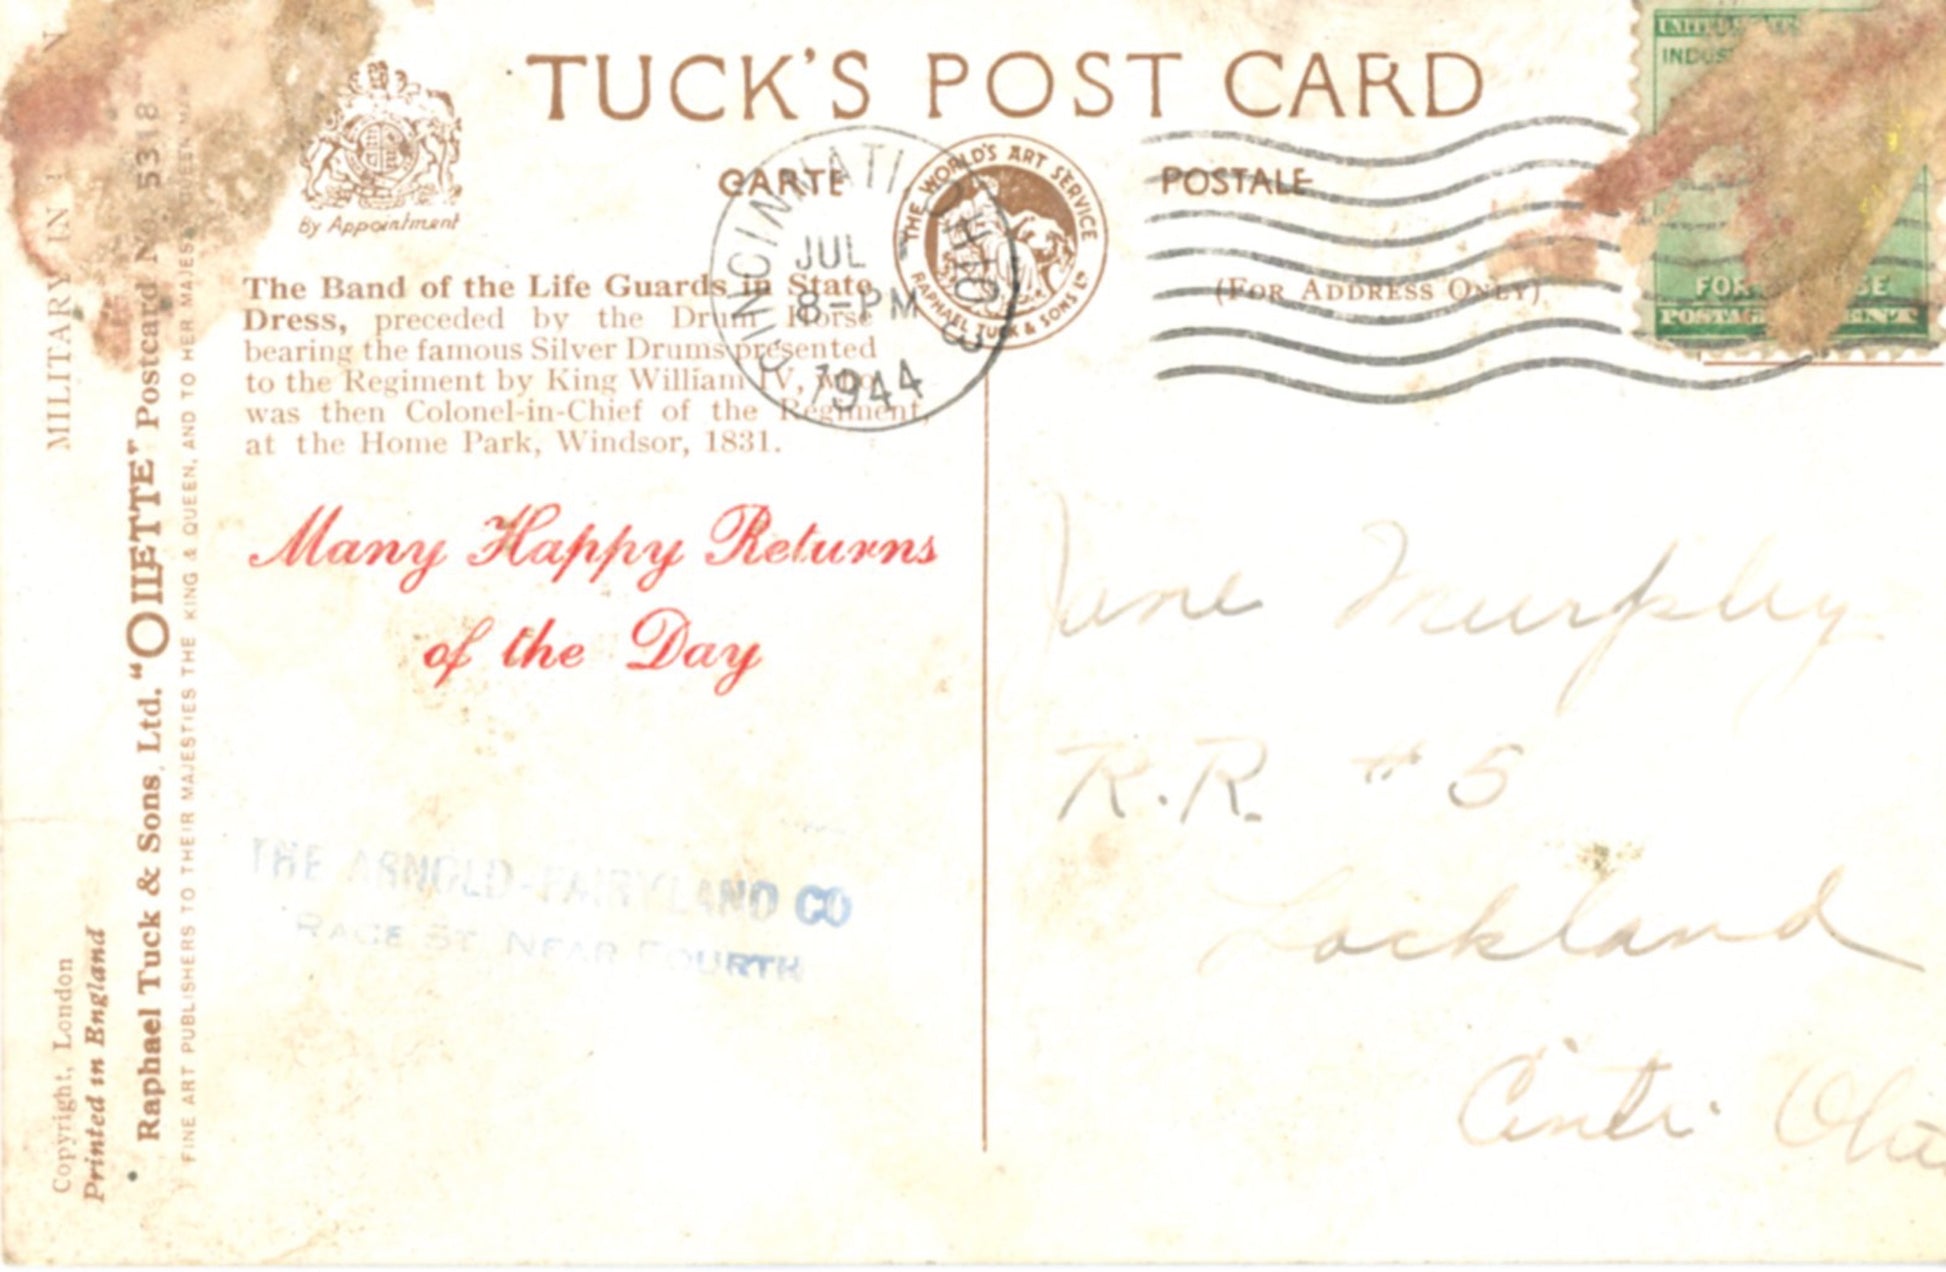 TUCK'S POST CARD
CARTE POSTALE
(FOR ADDRESS ONLY)
By Appointment
THE WORLD'S ART SERVICE
RAPHAEL TUCK & SONS LTD
CINCINNATI, OHIO
JUL
8-PM
3
1944
UNITED STATES
INDUS
FOR DEFENSE
POSTAGE CENT
The Band of the Life Guards in State
Dress, preceded by the Drum Horse
bearing the famous Silver Drums presented
to the Regiment by King William IV, who
was then Colonel-in-Chief of the Regiment,
at the Home Park, Windsor, 1831.
Many Happy Returns
of the Day
THE ARNOLD-FAIRYLAND CO
RACE ST. NEAR FOURTH
June Murphy
R.R. # 5
Lockland
Cinti. Ohio
MILITARY IN
Copyright, London
Printed in England
Raphael Tuck & Sons, Ltd. "OILETTE" Postcard No. 5318
FINE ART PUBLISHERS TO THEIR MAJESTIES THE KING & QUEEN, AND TO HER MAJESTY QUEEN MARY